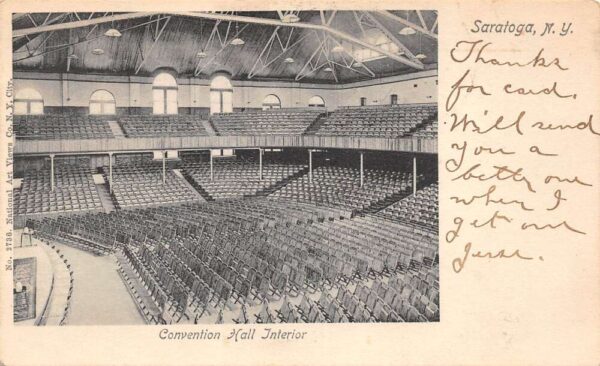 Saratoga, N.Y.
Thanks
for card.
Will send
you a
better one
when I
get one
No. 2736. National Art Views Co. N.Y. City.
Convention Hall Interior